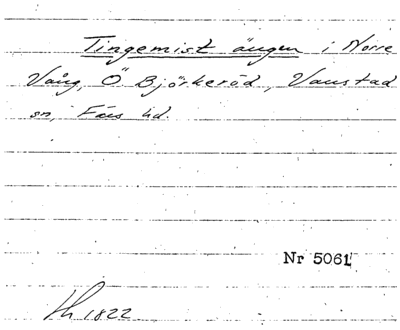 Tingemist ängen i Norre
Vång, Ö Björkeröd, Vanstad
sn, Färs hd.
Nr 5061
th 1822